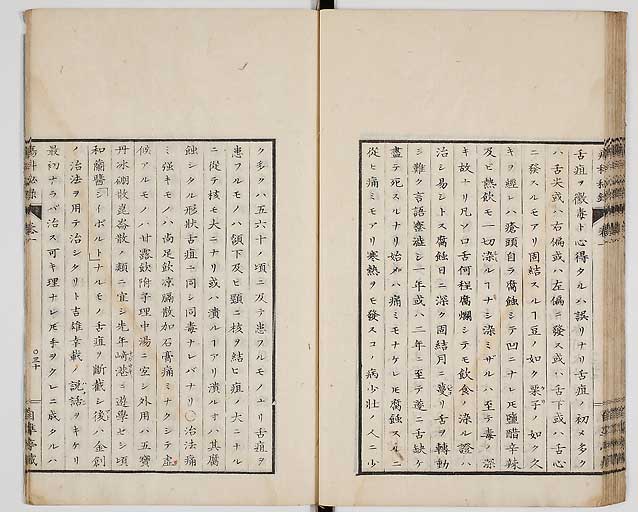 舌疽ヲ黴毒ト心得タルハ誤リナリ舌疽ノ初メ多ク
ハ舌尖或ハ右偏或ハ左偏ニ發ス或ハ舌下或ハ舌心
ニ發スルモアリ固結スルヿ豆ノ如ク栗子ノ如ク久
キヲ經レハ瘡頭自ラ腐蝕シテ凹ニナレ𪜈鹽醋辛辣
及ビ熱飮モ一切染ルヿナシ染ミザルハ至テ毒ノ深
キ故ナリ凡ソ口舌何程腐爛シテモ飮食ノ染ル證ハ
治シ易シトス腐蝕日ニ深ク固結月ニ蔓リ舌ヲ轉動
シ難ク言語蹇澁シ一年或ハ二年ニ至テ遂ニ舌缺ケ
盡テ死スルナリ始メハ痛ミモナケレ𪜈腐蝕スルニ
從ヒ痛ミモアリ寒熱ヲモ發スコノ病少壯ノ人ニ少
ク多クハ五六十ノ頃ニ及テ患フルモノナリ舌疽ヲ
患フルモノハ頷下及ヒ頸ニ核ヲ結ヒ疽ノ大ニナル
ニ從テ核モ大ニナリ或ハ潰ルヿアリ潰ルオハ其腐
蝕シタル形狀舌疽ニ同シ同毒ナレバナリ〇治法痛
ミ强キモノハ尚足飮凉膈散加石膏痛ミナクシテ虛
候アルモノハ甘露飮附子理中湯ニ宜シ外用ハ五寶
丹冰硼散崑崙散ノ類ニ宜シ先年崎港ニ遊學セシ頃
和蘭醫シーボルトナルモノ舌疽ヲ斷截シ後ハ金創
ノ治法ヲ用テ治シタリト吉雄幸載ノ說話ヲキケリ
最初ナラバ治ス可キ理ナレ𪜈手ヲクレニ成タルハ
瘍科秘錄 卷一
〇三十